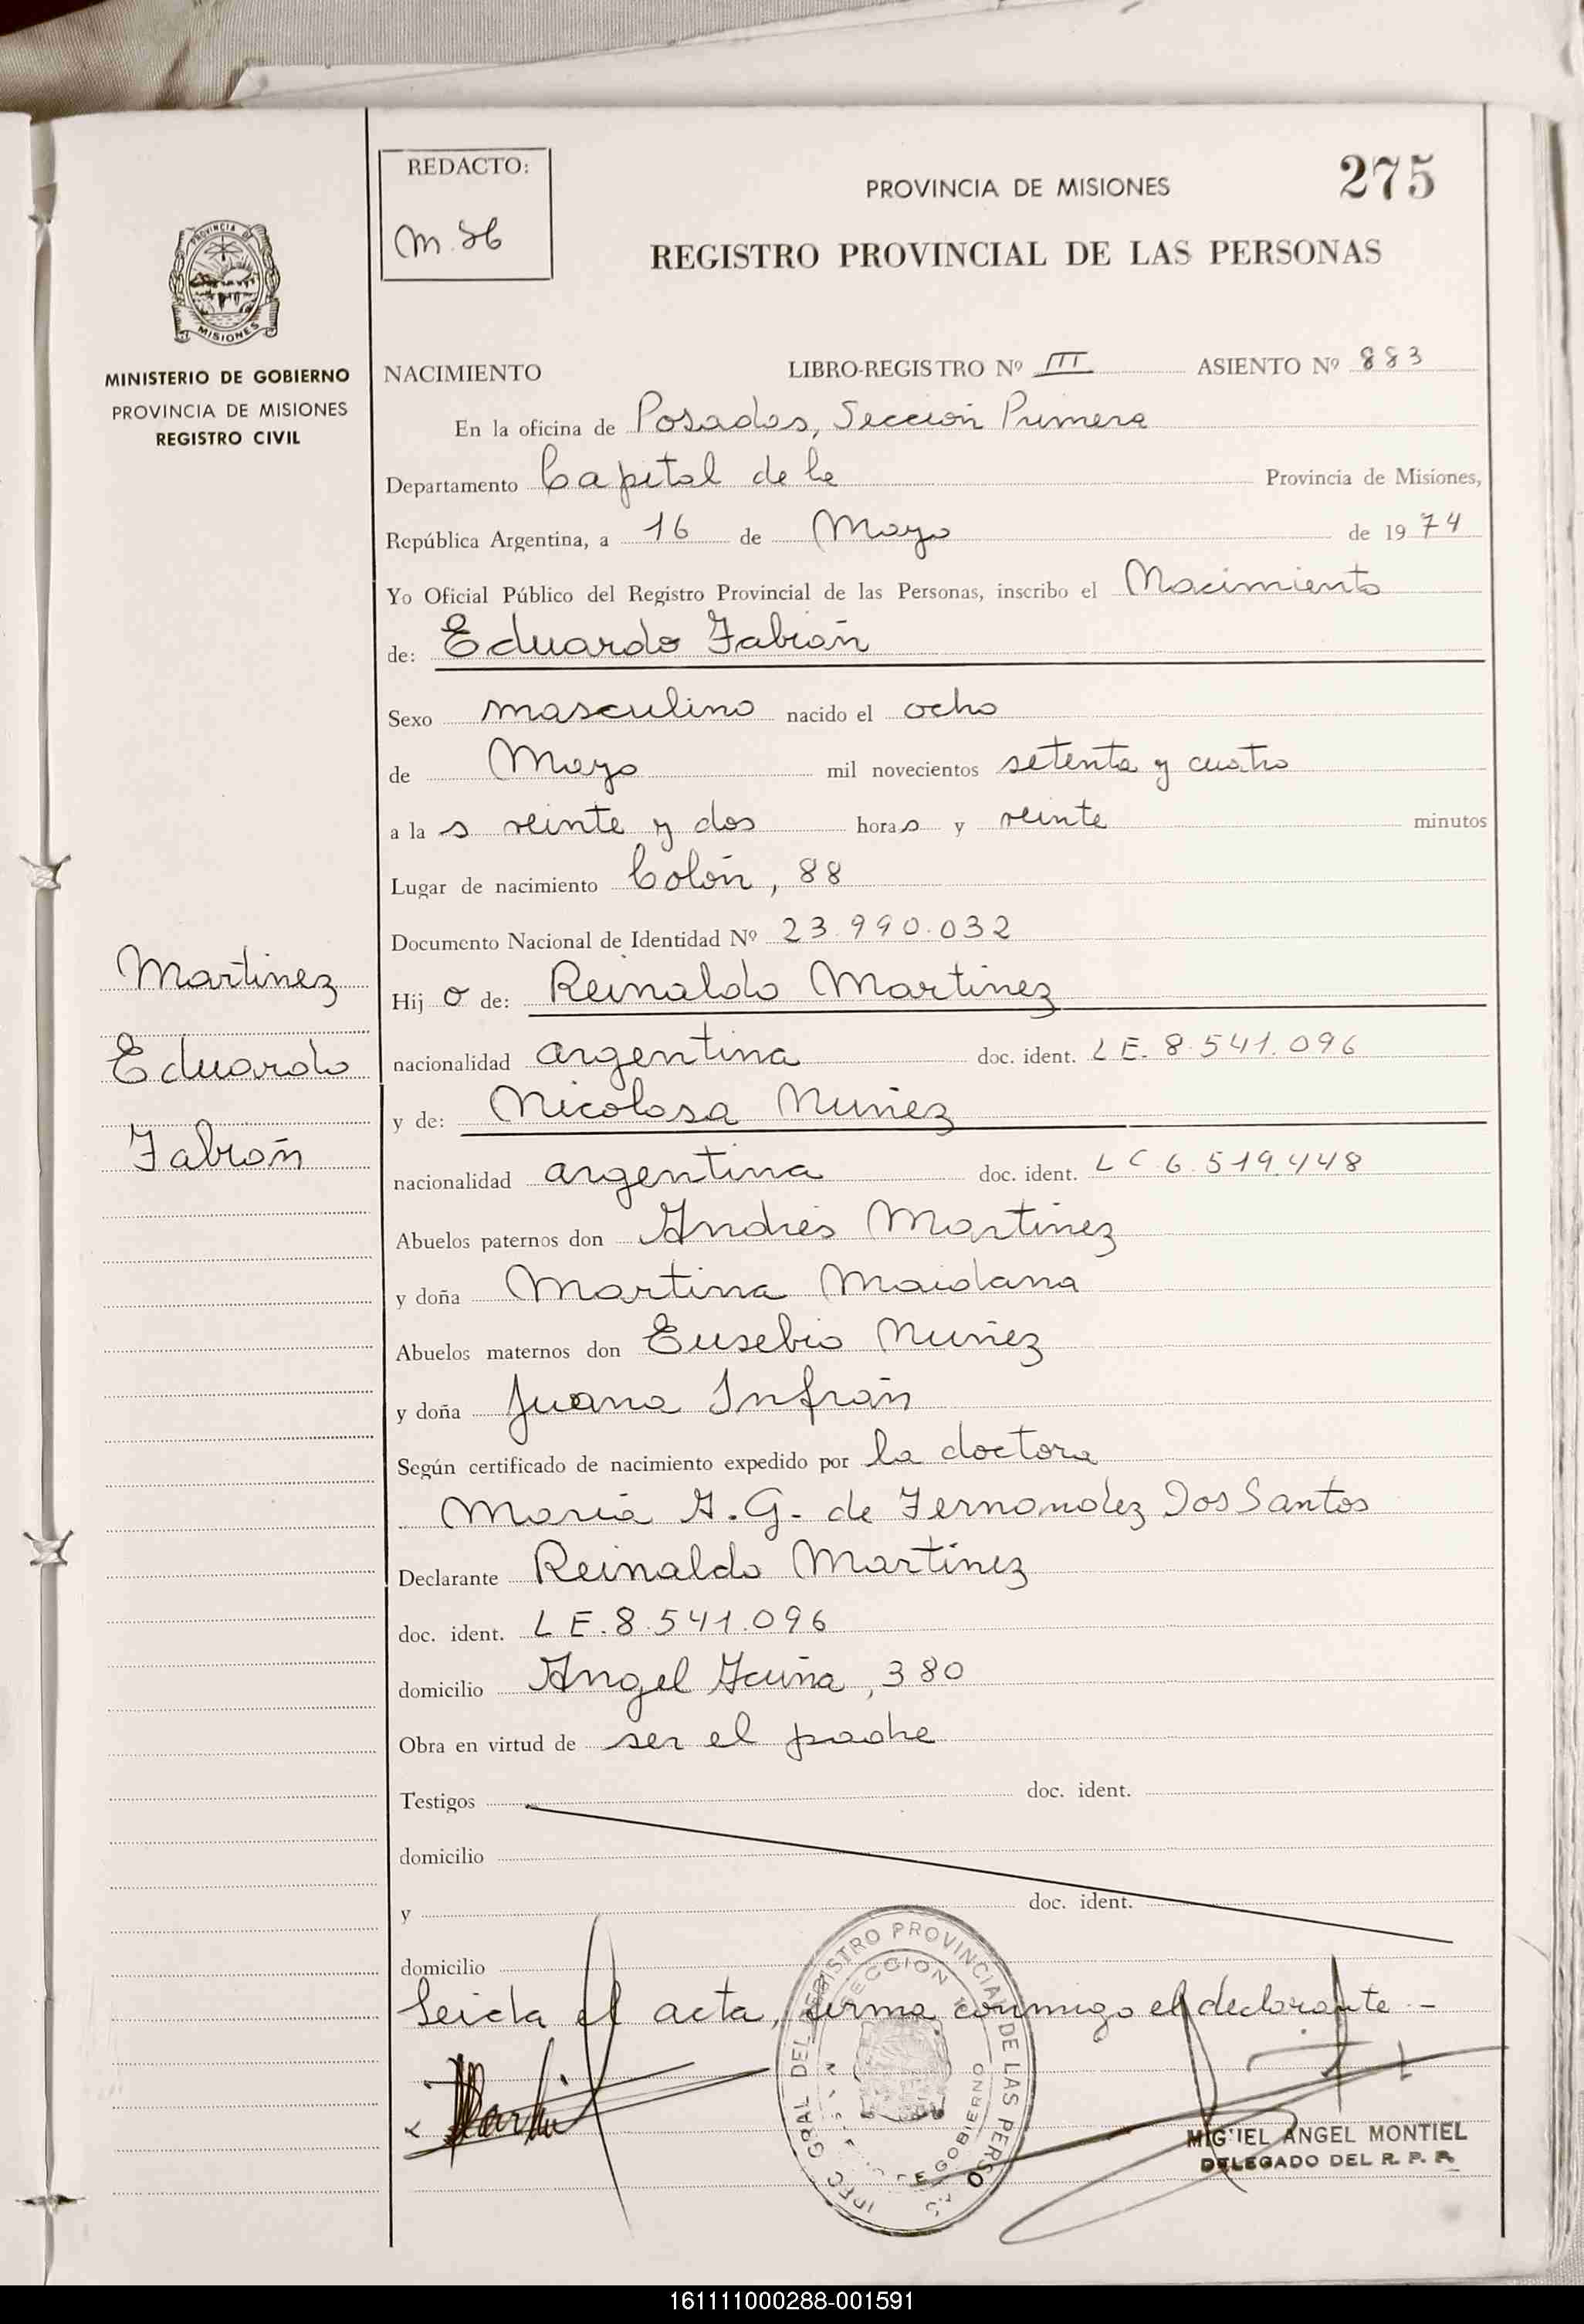 REDACTO:
275
PROVINCIA DE MISIONES
REGISTRO PROVINCIAL DE LAS PERSONAS
PROVINCIA DE
MISIONES
MINISTERIO DE GOBIERNO
PROVINCIA DE MISIONES
REGISTRO CIVIL
NACIMIENTO LIBRO-REGISTRO Nº III ASIENTO Nº 883
En la oficina de Posadas, Sección Primera
Departamento Capital de la Provincia de Misiones,
República Argentina, a 16 de Mayo de 1974
Yo Oficial Público del Registro Provincial de las Personas, inscribo el Nacimiento
de: Eduardo Fabián
Sexo masculino nacido el ocho
de Mayo mil novecientos setenta y cuatro
a la s veinte y dos horas y veinte minutos
Lugar de nacimiento Colón, 88
Documento Nacional de Identidad Nº 23.990.032
Martinez
Eduardo
Fabián
Hij o de: Reinaldo Martinez
nacionalidad argentina doc. ident. L E. 8.541.096
y de: Nicolasa Nuñez
nacionalidad argentina doc. ident. L C 6.519.448
Abuelos paternos don Andrés Martinez
y doña Martina Maidana
Abuelos maternos don Eusebio Nuñez
y doña Juana Infrán
Según certificado de nacimiento expedido por la doctora
María A. G. de Fernandez Dos Santos
Declarante Reinaldo Martinez
doc. ident. L E. 8.541.096
domicilio Angel Acuña, 380
Obra en virtud de ser el padre
Testigos doc. ident.
domicilio
y doc. ident.
domicilio
Leida el acta, firma conmigo el declarante.-
GRAL DEL REGISTRO PROVINCIAL DE LAS PERSO
SECCION
GOBIERNO
MIGUEL ANGEL MONTIEL
DELEGADO DEL R. P. P.
161111000288-001591